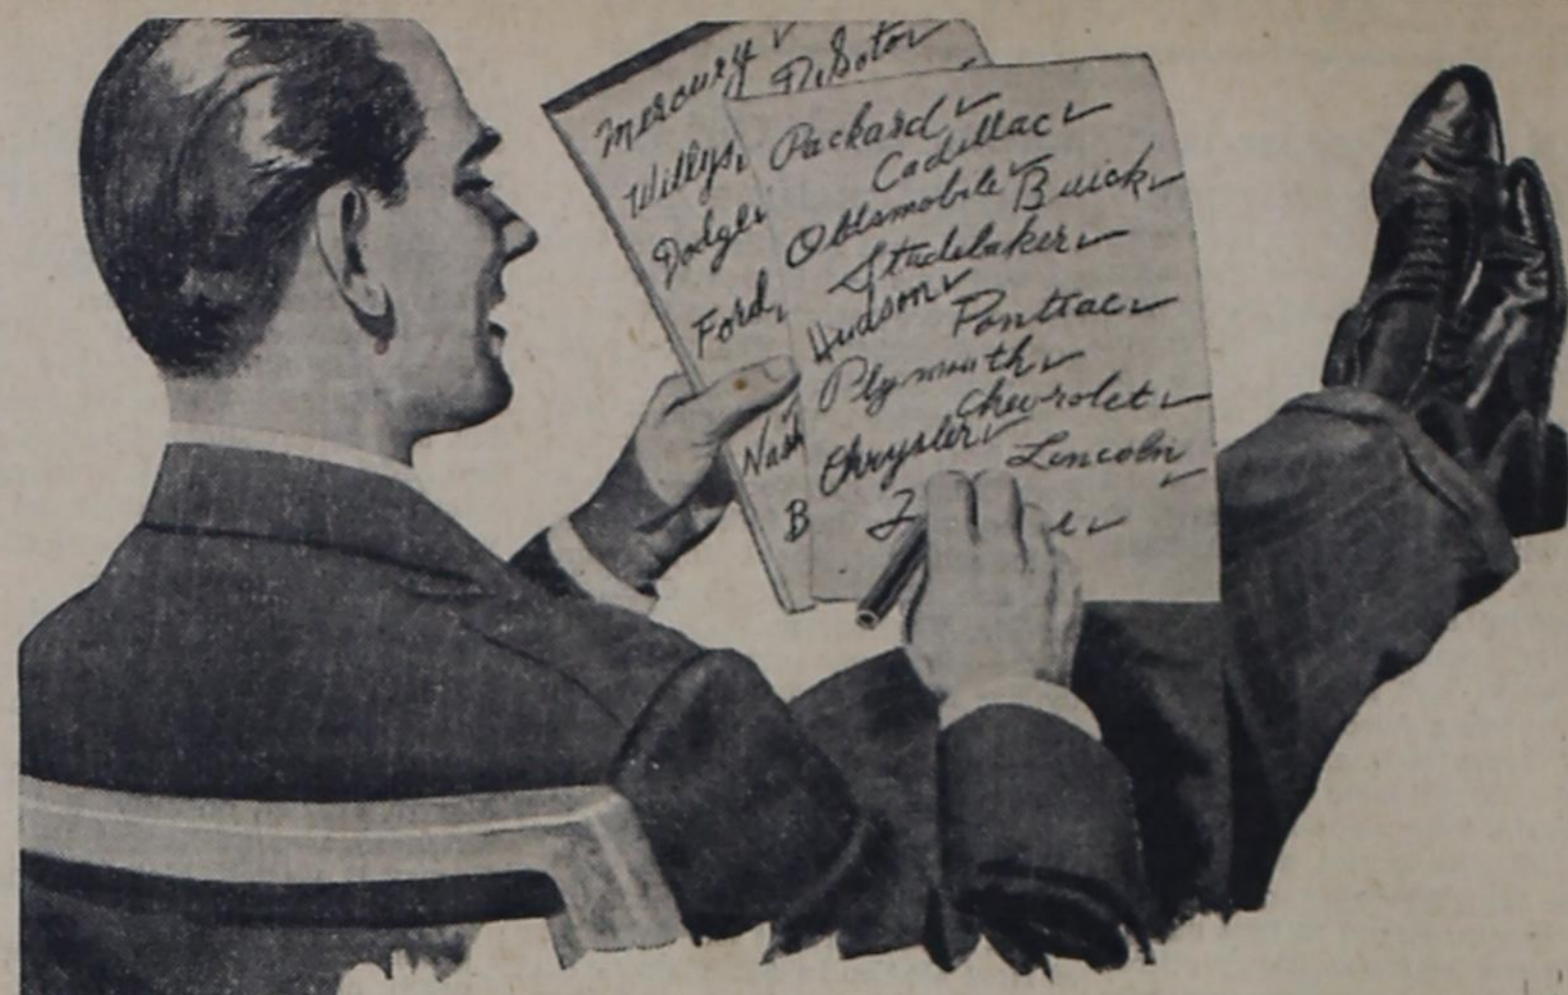 Mercury DeSoto
Willys
Dodge
Ford
Nash
B
Packard
Cadillac
Oldsmobile Buick
Studebaker
Hudson Pontiac
Plymouth
Chevrolet
Chrysler Lincoln